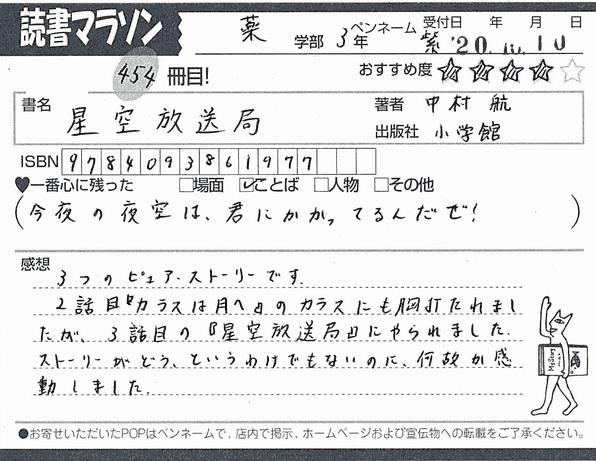 読書マラソン
薬 学部 3年 ペンネーム 紫 受付日 年 月 日
'20.10.10
454 冊目! おすすめ度 ★★★★☆
書名 星空放送局
著者 中村 航
出版社 小学館
ISBN 9784093861977
♥一番心に残った □場面 ☑ことば □人物 □その他
(今夜の夜空は、君にかかってるんだぜ!)
感想
3つのピュア・ストーリーです。
2話目『カラスは月へ』のカラスにも胸打たれまし
たが、3話目の『星空放送局』にやられました。
ストーリーがどう、というわけでもないのに、何故か感
動しました。
Mystery
●お寄せいただいたPOPはペンネームで、店内で掲示、ホームページおよび宣伝物への転載をご了承ください。